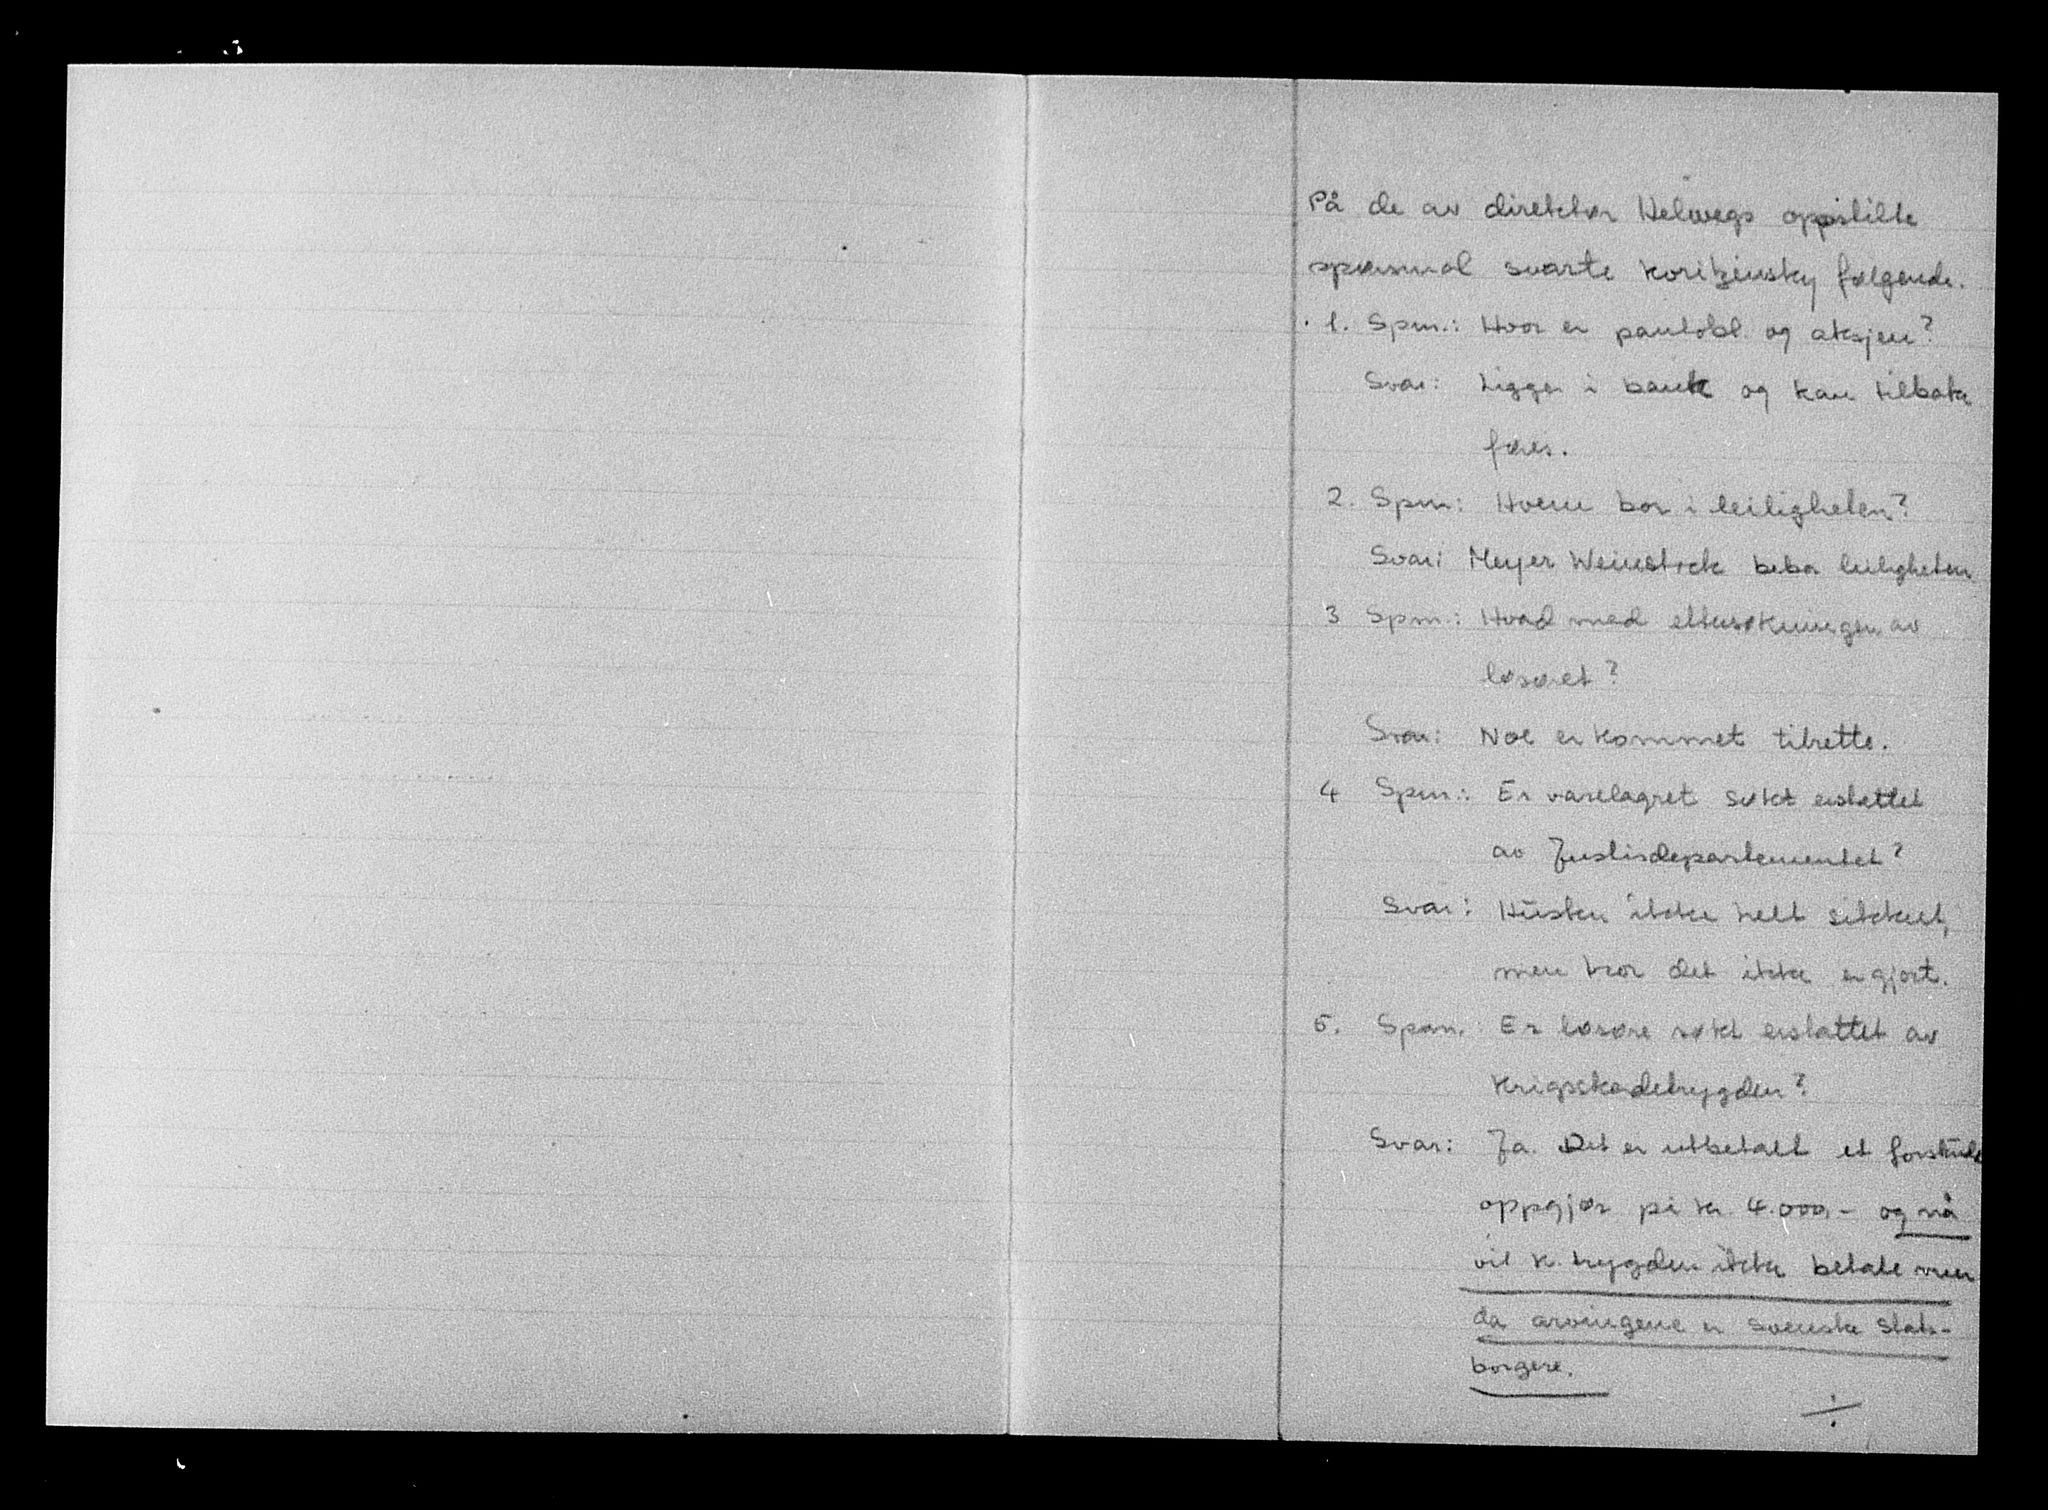 På de av direktør Helwegs oppstilte
spørsmål svarte Koritzinsky følgende.
1. Spm.: Hvor er pantobl. og aksjen?
Svar: Ligger i bank og kan tilbake
føres.
2. Spm: Hvem bor i leiligheten?
Svar: Meyer Weinstock bebor leiligheten
3 Spm.: Hvad med ettersøkningen av
løsøret?
Svar: Noe er kommet tilrette.
4 Spm.: Er varelagret søkt erstattet
av Justisdepartementet?
Svar: Husker ikke helt sikkert,
men tror det ikke er gjort.
5. Spm.: Er løsøre søkt erstattet av
Krigsskadetrygden?
Svar: Ja. Det er utbetalt et forskudd
oppgjør på kr. 4.000,- og nå
vil K.trygden ikke betale mer
da arvingene er svenske stats-
borgere.